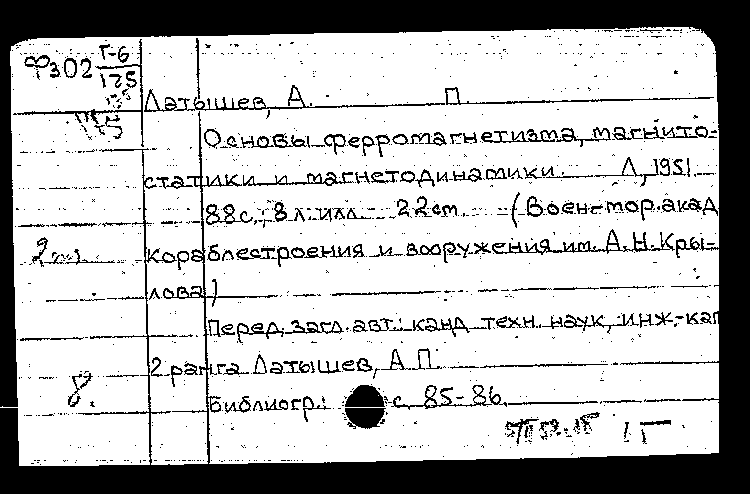 Ф302 Г-6
125
Латышев, А. П.
Основы ферромагнетизма, магнито-
статики и магнетодинамики. Л, 1951
88с., 8 л. илл. 22см. (Воен-мор. акад
2
кораблестроения и вооружения им. А.Н. Кры-
лова)
Перед загл. авт.: канд техн. наук, инж.-кап
2 ранга Латышев, А П.
8. Библиогр.: с. 85-86.